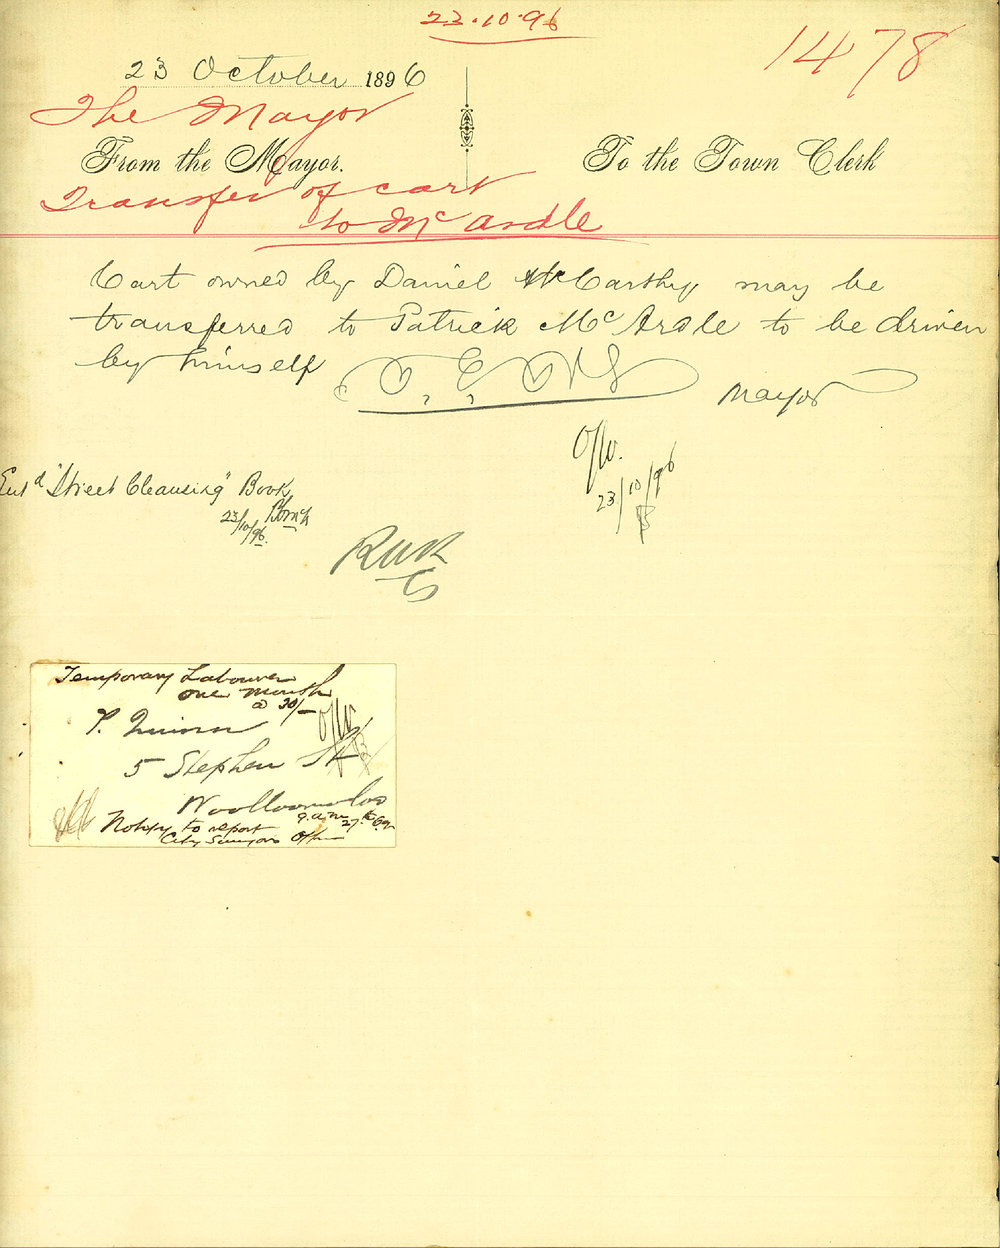 22.10.96
1478
23 October 1896
The Mayor
From the Mayor.
To the Town Clerk
Transfer of cart
to McArdle
Cart owned by Daniel McCarthy may be
transferred to Patrick McArdle to be driven
by himself
Mayor
Entd "Street Cleansing" Book
23/10/96
23/10/96
Temporary Labourer
one month
@ 30/-
P. Quinn
5 Stephen St
Woolloomooloo
9 a.m. 27th
Notify to report
City Surveyors Office